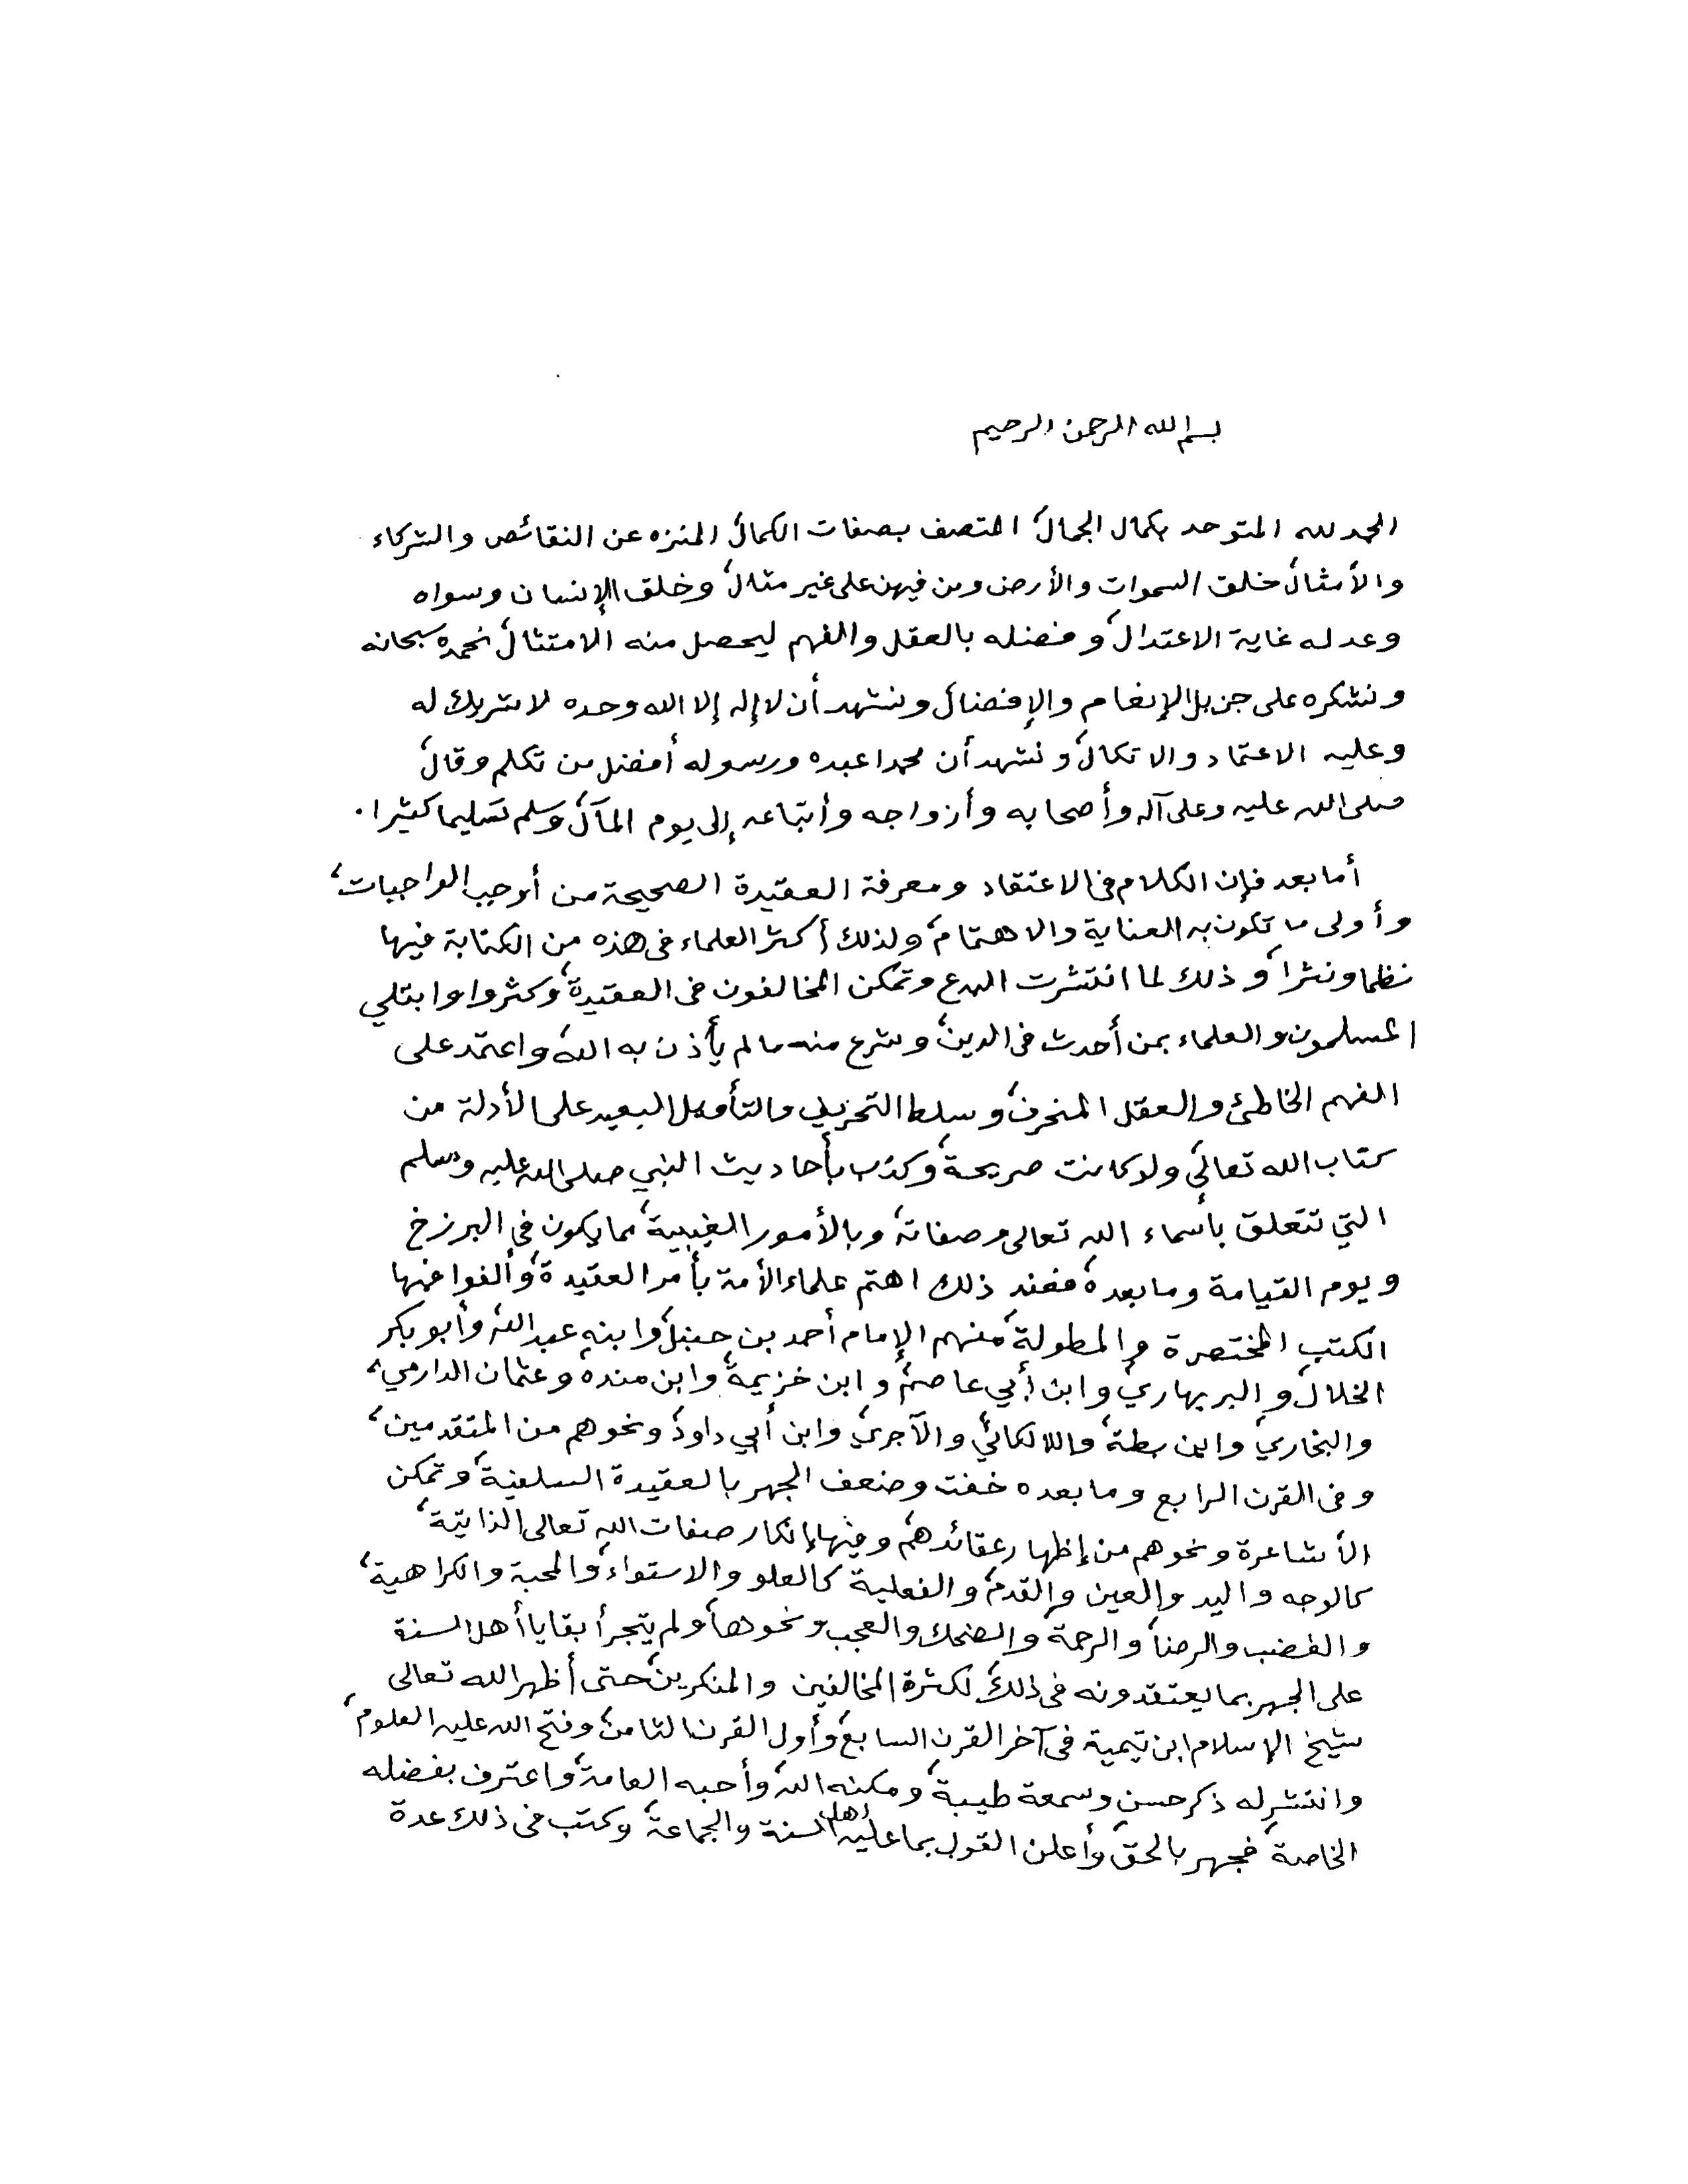 بسم الله الرحمن الرحيم
الحمد لله المتوحد بكمال الجمال، المتصف بصفات الكمال، المنزه عن النقائص والشركاء
والأمثال، خلق السموات والأرض ومن فيهن على غير مثال، وخلق الإنسان وسواه
وعدله غاية الاعتدال، وفضله بالعقل والفهم ليحصل منه الامتثال، نحمده سبحانه
ونشكره على جزيل الإنعام والإفضال، ونشهد أن لا إله إلا الله وحده لا شريك له
وعليه الاعتماد والاتكال، ونشهد أن محمدا عبده ورسوله أفضل من تكلم وقال،
صلى الله عليه وعلى آله وأصحابه وأزواجه وأتباعه إلى يوم المآل، وسلم تسليما كثيرا.
أما بعد فإن الكلام في الاعتقاد ومعرفة العقيدة الصحيحة من أوجب الواجبات،
وأولى ما تكون به العناية والاهتمام، ولذلك أكثر العلماء في هذه من الكتابة فيها
نظما ونثرا، وذلك لما انتشرت البدع وتمكن المخالفون في العقيدة، وكثروا وابتلي
المسلمون والعلماء بمن أحدث في الدين، وشرع منه ما لم يأذن به الله، واعتمد على
الفهم الخاطئ والعقل المنحرف، وسلط التحريف والتأويل البعيد على الأدلة من
كتاب الله تعالى، ولو كانت صريحة، وكذب بأحاديث النبي صلى الله عليه وسلم
التي تتعلق بأسماء الله تعالى وصفاته، وبالأمور الغيبية، مما يكون في البرزخ
ويوم القيامة وما بعده، فعند ذلك اهتم علماء الأمة بأمر العقيدة، وألفوا فيها
الكتب المختصرة والمطولة، منهم الإمام أحمد بن حنبل، وابنه عبد الله، وأبو بكر
الخلال، والبربهاري، وابن أبي عاصم، وابن خزيمة، وابن منده، وعثمان الدارمي،
والبخاري، وابن بطة، واللالكائي، والآجري، وابن أبي داود، ونحوهم من المتقدمين،
وفي القرن الرابع وما بعده خفت وضعف الجهر بالعقيدة السلفية، وتمكن
الأشاعرة ونحوهم من إظهار عقائدهم، وفيها إنكار صفات الله تعالى الذاتية،
كالوجه واليد والعين والقدم، والفعلية كالعلو والاستواء، والمحبة والكراهية،
والغضب والرضا، والرحمة والضحك والعجب ونحوها، ولم يتجرأ بقايا أهل السنة
على الجهر بما يعتقدونه في ذلك، لكثرة المخالفين والمنكرين، حتى أظهر الله تعالى
شيخ الإسلام ابن تيمية في آخر القرن السابع، وأول القرن الثامن، وفتح الله عليه العلوم،
وانتشر له ذكر حسن وسمعة طيبة، ومكنه الله، وأحبه العامة، واعترف بفضله
الخاصة، فجهر بالحق، وأعلن القول بما عليه أهل السنة والجماعة، وكتب في ذلك عدة